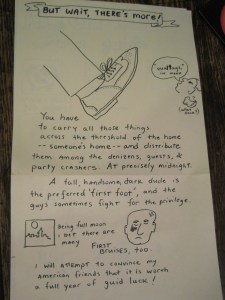 BUT WAIT, THERE'S MORE!
You have
to carry all those things
across the threshold of the home
--someone's home-- and distribute
them among the denizens, guests, &
party crashers. At precisely midnight.
A tall, handsome, dark dude is
the preferred 'first foot', and the
guys sometimes fight for the privilege.
being full moon
i bet there are
many
FIRST
BRUISES, TOO.
i will attempt to convince my
american friends that it is worth
a full year of guid luck!